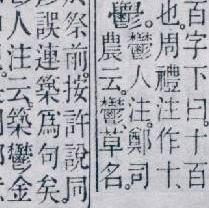 百字下曰十百
也。周禮注作十、
鬱。鬱人注。鄭司
農云。鬱草名。
祭前。按許說同
誤連築爲句矣。
人注云。築鬱金